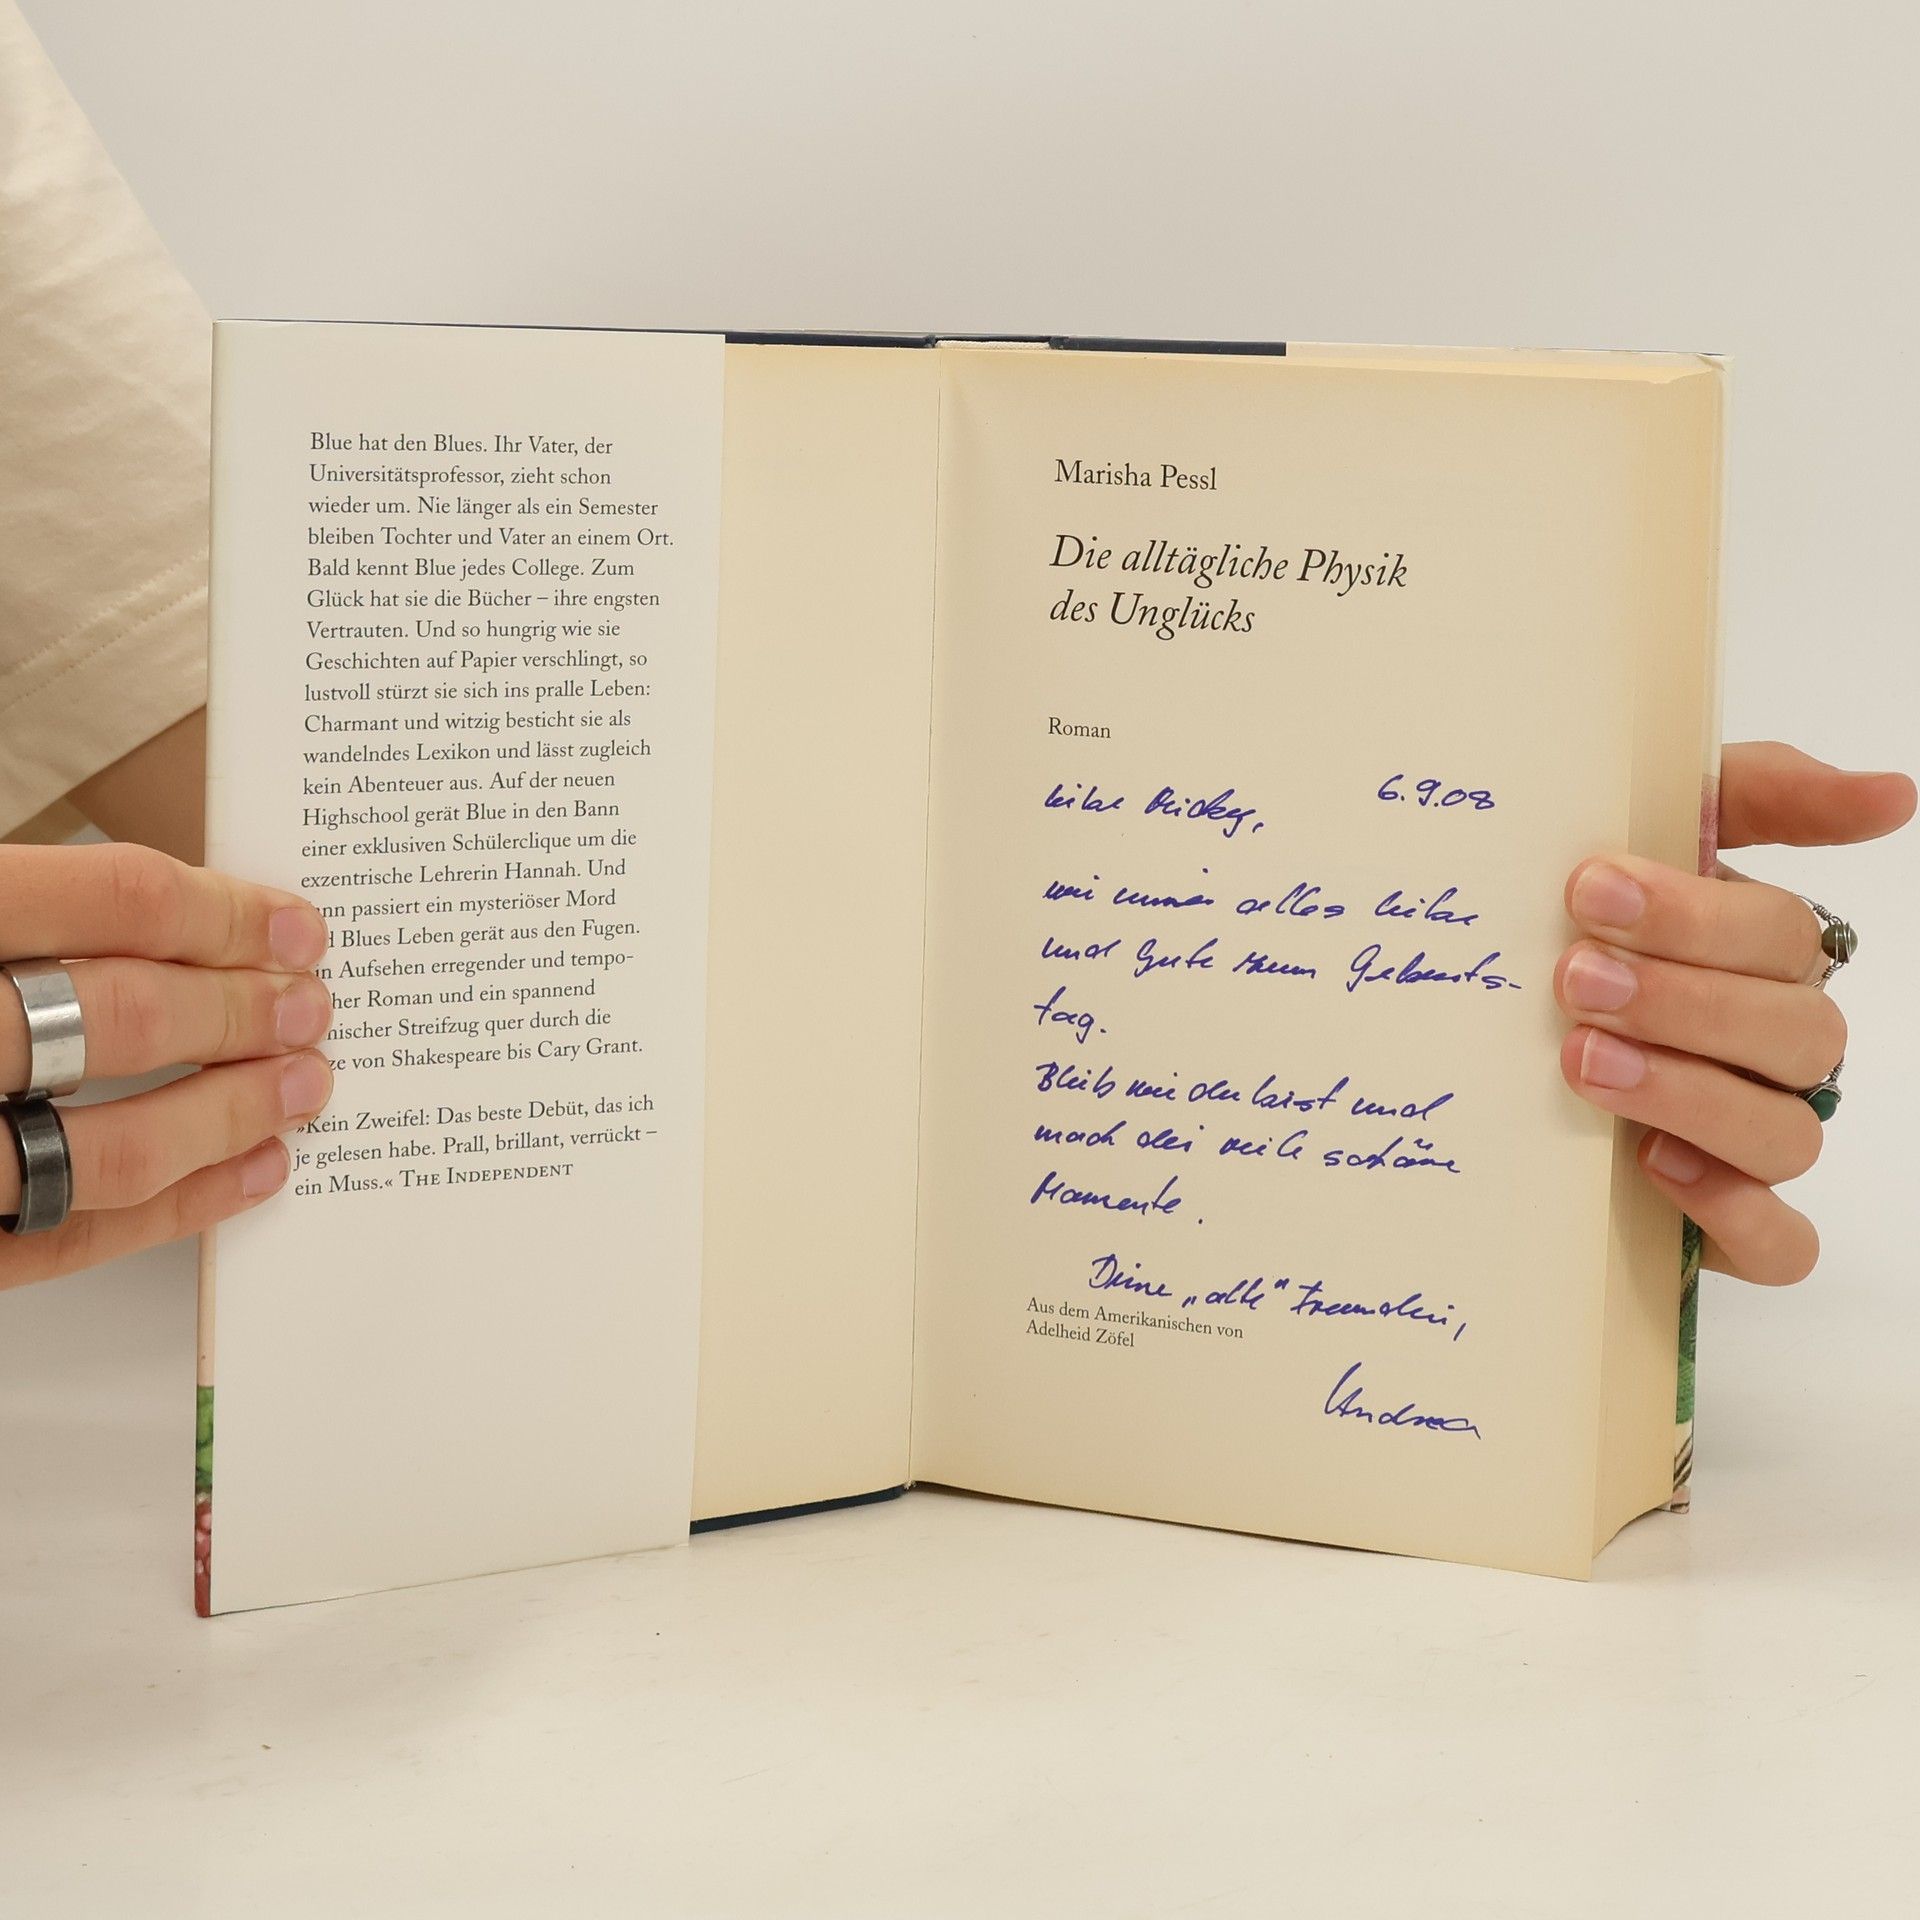 Blue hat den Blues. Ihr Vater, der
Universitätsprofessor, zieht schon
wieder um. Nie länger als ein Semester
bleiben Tochter und Vater an einem Ort.
Bald kennt Blue jedes College. Zum
Glück hat sie die Bücher – ihre engsten
Vertrauten. Und so hungrig wie sie
Geschichten auf Papier verschlingt, so
lustvoll stürzt sie sich ins pralle Leben:
Charmant und witzig besticht sie als
wandelndes Lexikon und lässt zugleich
kein Abenteuer aus. Auf der neuen
Highschool gerät Blue in den Bann
einer exklusiven Schülerclique um die
exzentrische Lehrerin Hannah. Und
passiert ein mysteriöser Mord
Blues Leben gerät aus den Fugen.
Aufsehen erregender und tempo-
Roman und ein spannend
Streifzug quer durch die
von Shakespeare bis Cary Grant.
»Kein Zweifel: Das beste Debüt, das ich
je gelesen habe. Prall, brillant, verrückt –
ein Muss.« THE INDEPENDENT
Marisha Pessl
Die alltägliche Physik
des Unglücks
Roman
6.9.08
liebe
wie immer alles liebe
und Gute zum Geburts-
tag.
Bleib wie du bist und
mach dir viele schöne
Momente.
Deine „alte“ Freundin,
Aus dem Amerikanischen von
Adelheid Zöfel
Andrea